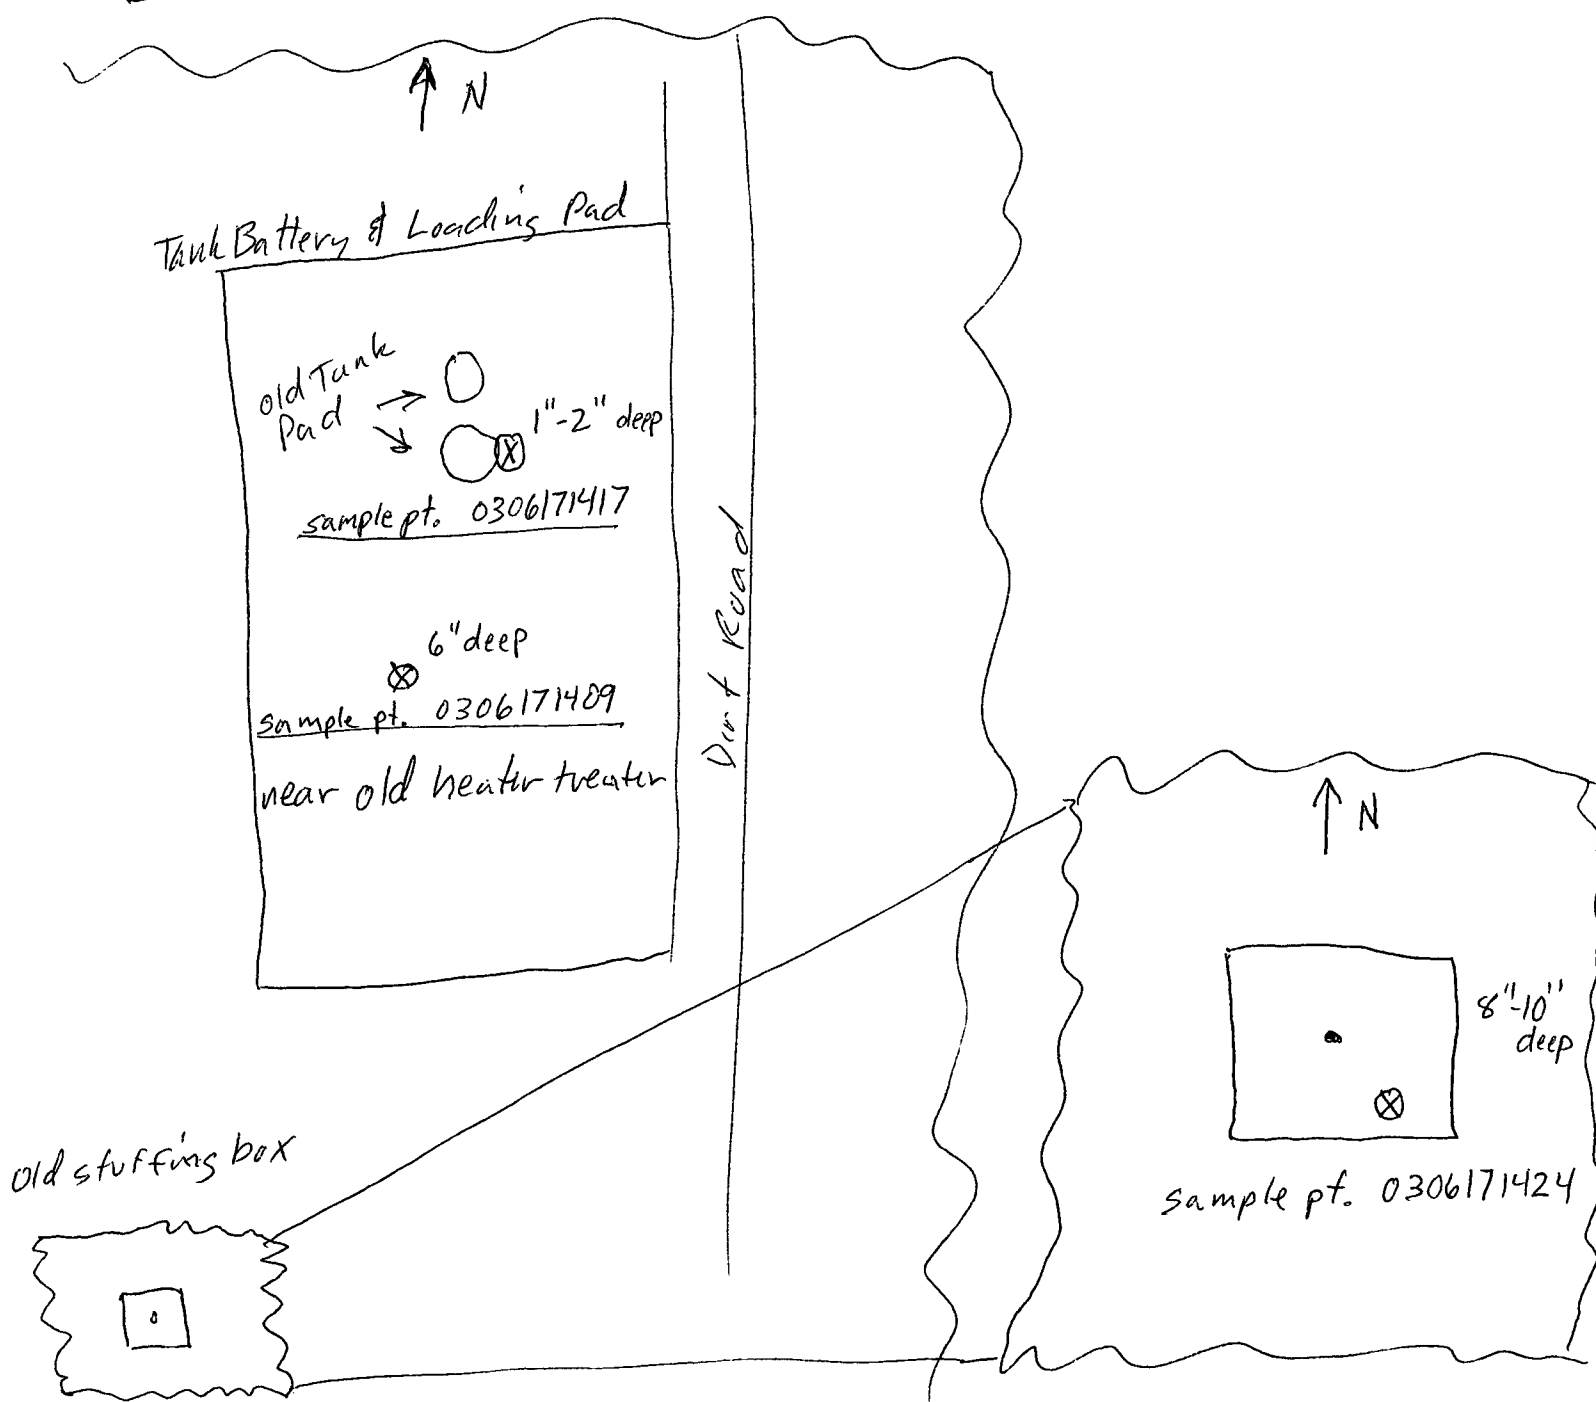 N
Tank Battery & Loading Pad
old Tank
Pad
1"-2" deep
sample pt. 0306171417
6" deep
sample pt. 0306171409
near old heater treater
Dirt Road
N
8"-10"
deep
sample pt. 0306171424
old stuffing box